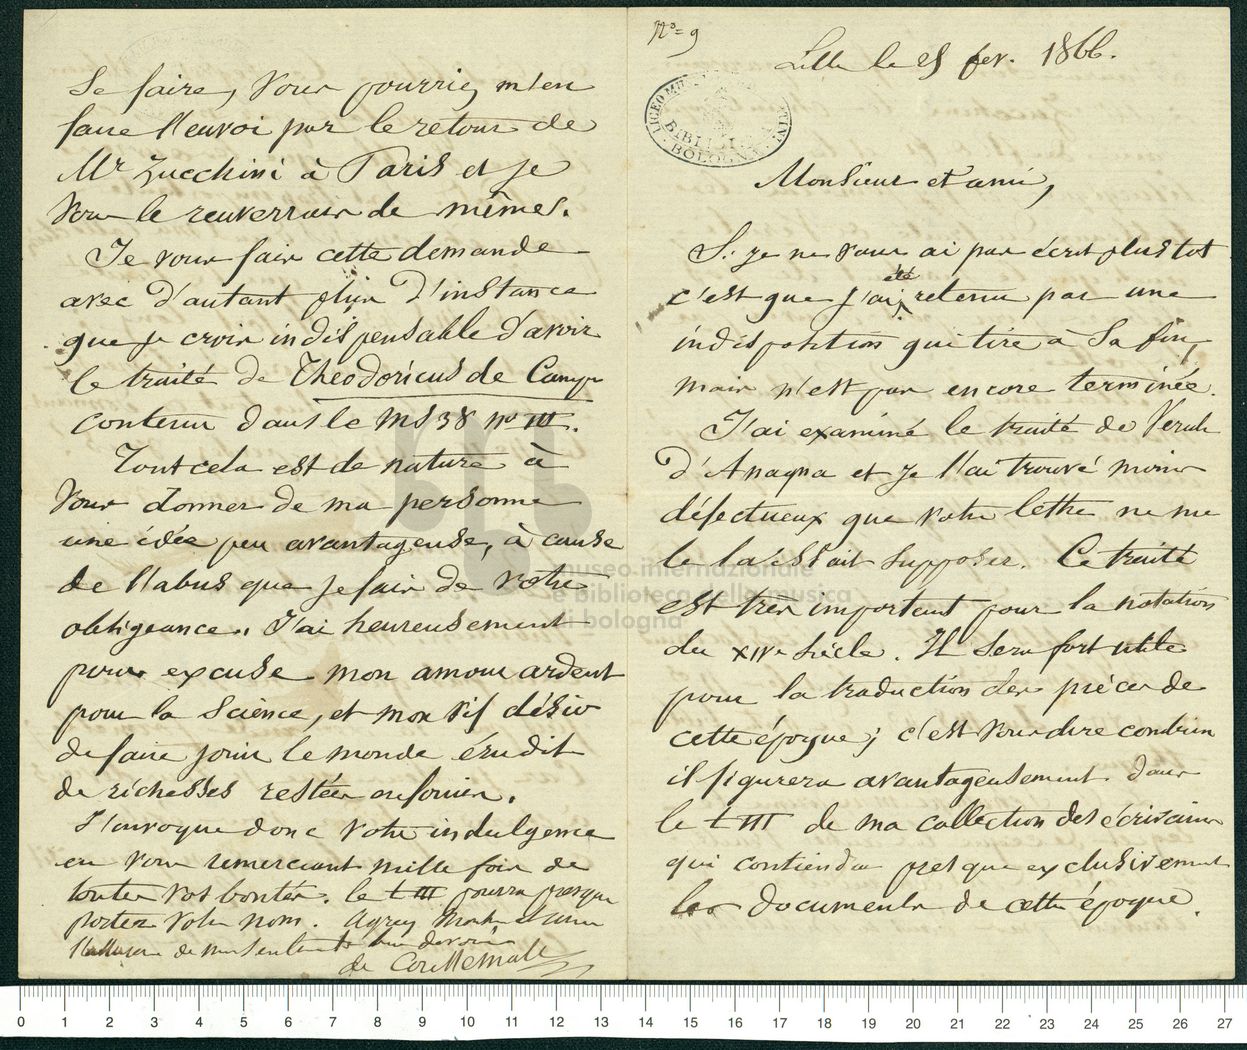 No = 9
Lille le 25 fev. 1866.
LICEO MUSICALE
BIBLIOTECA
BOLOGNA
Monsieur et ami,
Si je ne vous ai pas écrit plus tot
c'est que j'ai été retenu par une
indisposition qui tire à sa fin,
mais n'est pas encore terminée.
J'ai examiné le traité de Verulus
d'Anagna et je l'ai trouvé moins
défectueux que votre lettre ne me
le laissait supposer. Ce traité
est très important pour la notation
du XIVe siècle. Il sera fort utile
pour la traduction des pièces de
cette époque; c'est vous dire combien
il figurera avantageusement dans
le t III de ma collection des écrivains
qui contiendra presque exclusivement
les documents de cette époque.
se faire, vous pourriez m'en
faire l'envoi par le retour de
Mr Zucchini à Paris et je
vous le renverrais de même.
Je vous fais cette demande
avec d'autant plus d'instance
que je crois indispensable d'avoir
le traité de Theodoricus de Campo
contenu dans le MS 38 no III.
Tout cela est de nature à
vous donner de ma personne
une idée peu avantageuse, à cause
de l'abus que je fais de votre
obligeance. J'ai heureusement
pour excuse mon amour ardent
pour la science, et mon vif désir
de faire jouir le monde érudit
de richesses restées enfouies.
J'invoque donc votre indulgence
en vous remerciant mille fois de
toutes vos bontés. le t III pourra presque
porter votre nom. Agréez Monsieur et ami
de mes sentiments bien dévoués
de Coussemaker
museo internazionale
e biblioteca della musica
di bologna
0 1 2 3 4 5 6 7 8 9 10 11 12 13 14 15 16 17 18 19 20 21 22 23 24 25 26 27